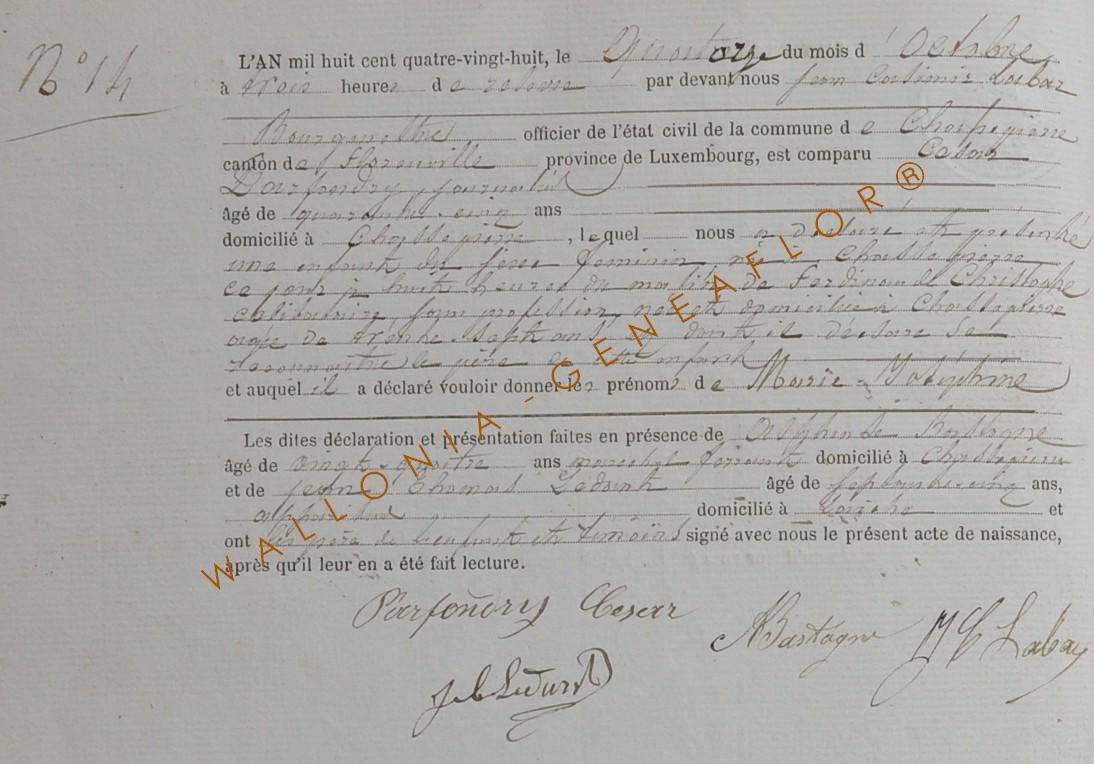 N° 14
L'AN mil huit cent quatre-vingt-huit, le Quatorze du mois d'Octobre
à trois heures de relevée par devant nous Jean Casimir Labar
Bourgmestre officier de l'état civil de la commune de Chassepierre
canton de Florenville province de Luxembourg, est comparu César
Parfondry, journalier
âgé de quarante-cinq ans
domicilié à Chassepierre, lequel nous a déclaré et présenté
une enfant du sexe féminin, née à Chassepierre
ce jour à huit heures du matin, de Ferdinande Christophe
célibataire, sans profession, née et domiciliée à Chassepierre
âgée de trente-sept ans, dont il déclare se
reconnaître le père de cette enfant
et auquel il a déclaré vouloir donner les prénoms de Marie-Joséphine
Les dites déclaration et présentation faites en présence de Alphonse Bastogne
âgé de vingt-quatre ans maréchal ferrant domicilié à Chassepierre
et de Jean Thomas Ledent âgé de septante-cinq ans,
domicilié à Laiche et
ont les père de l'enfant et témoins signé avec nous le présent acte de naissance,
après qu'il leur en a été fait lecture.
Parfondry Cesar
ABastogne
Labar
WALLONIA-GENEAFLOR®